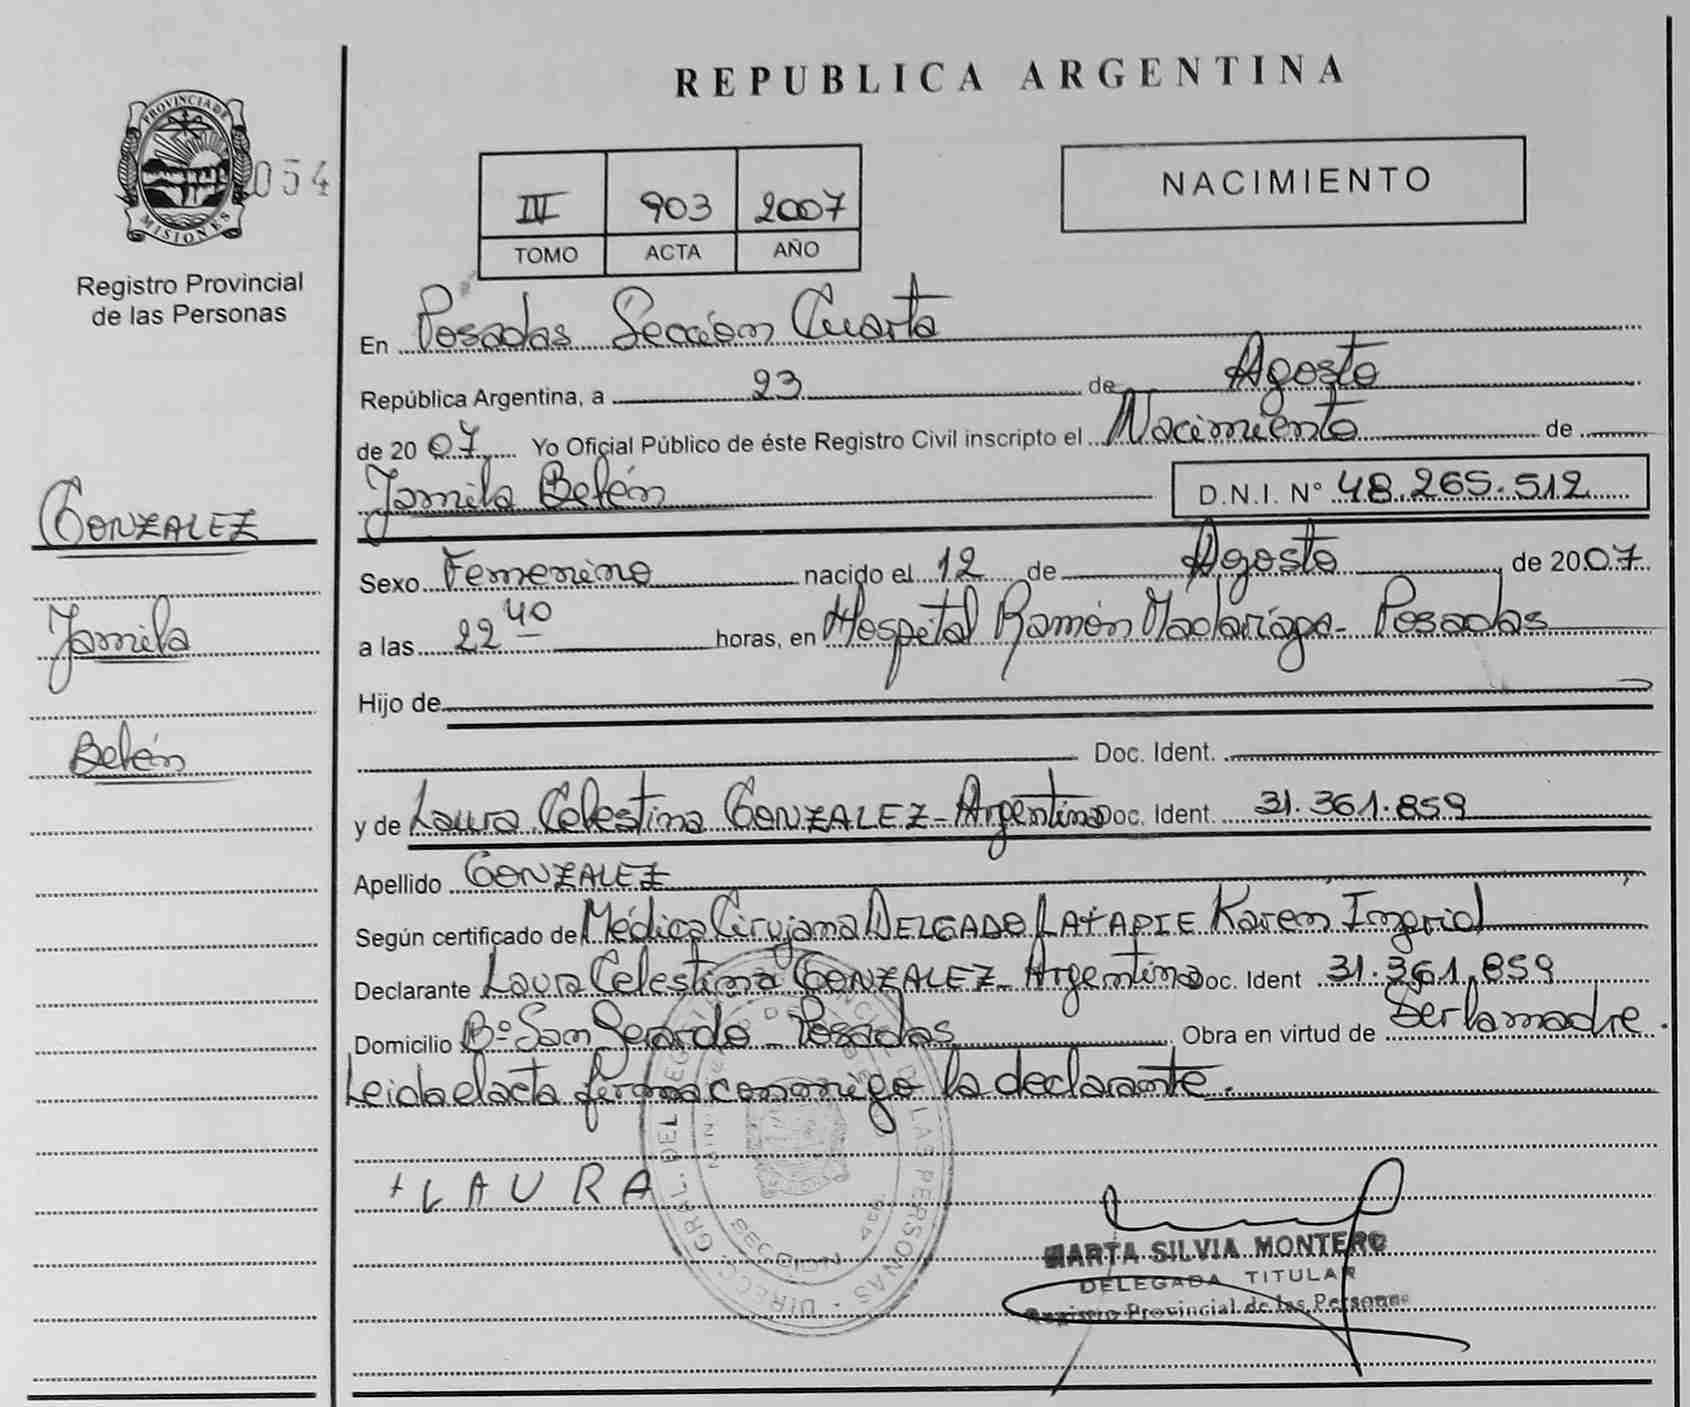 REPUBLICA ARGENTINA
PROVINCIA DE
MISIONES
054
Registro Provincial
de las Personas
IV 903 2007
TOMO ACTA AÑO
NACIMIENTO
En Posadas Sección Cuarta
República Argentina, a 23 de Agosto
de 2007 Yo Oficial Público de éste Registro Civil inscripto el Nacimiento de
Jamila Belén D.N.I. N° 48.265.512
GONZALEZ
Jamila
Belén
Sexo Femenino nacido el 12 de Agosto de 2007
a las 22 40 horas, en Hospital Ramón Madariaga - Posadas
Hijo de
Doc. Ident.
y de Laura Celestina GONZALEZ - Argentina Doc. Ident. 31.361.859
Apellido GONZALEZ
Según certificado de Médica Cirujana DELGADO LATAPIE Karen Ingrid
Declarante Laura Celestina GONZALEZ - Argentina Doc. Ident 31.361.859
Domicilio Bº San Gerardo - Posadas Obra en virtud de Ser la madre.
Leida el acta firma conmigo la declarante.
+ LAURA
MARTA SILVIA MONTERO
DELEGADA TITULAR
Registro Provincial de las Personas